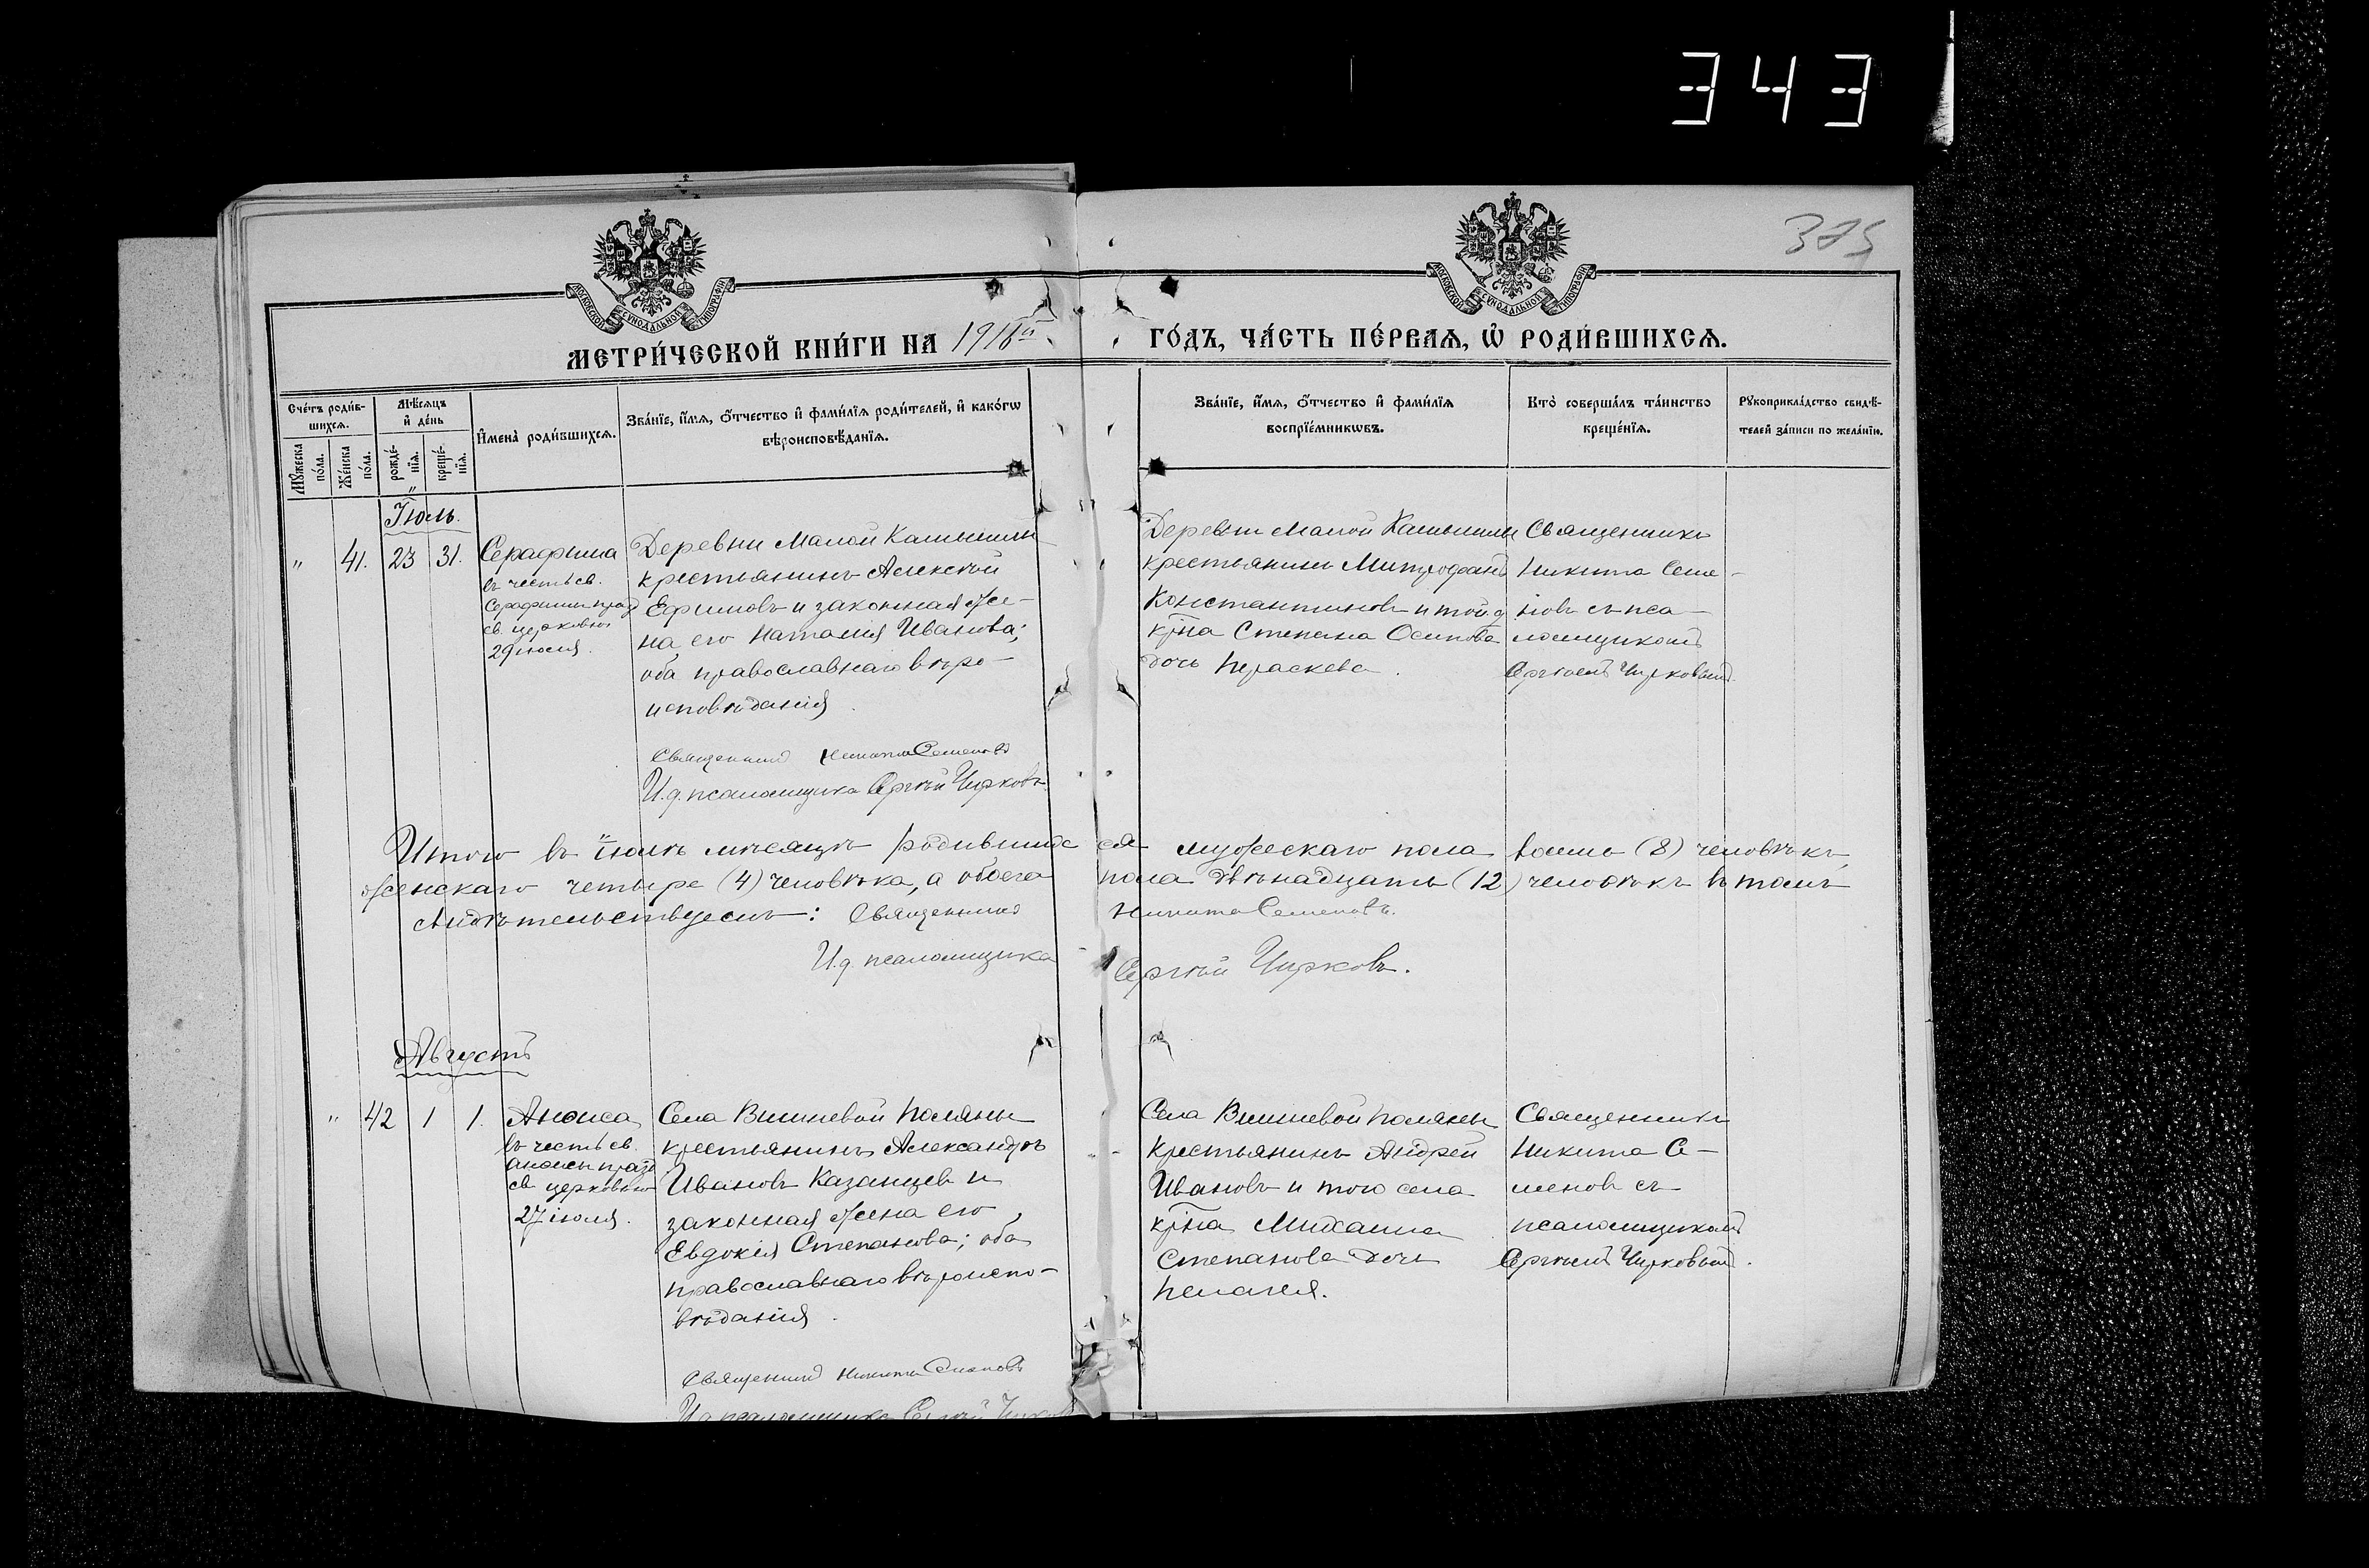 343
375
МОСКОВСКОЙ СѴНОДАЛЬНОЙ ТИПОГРАФІИ
МОСКОВСКОЙ СѴНОДАЛЬНОЙ ТИПОГРАФІИ
МЕТРИ́ЧЕСКОЙ КНИ́ГИ НА 1918й ГО́ДЪ, ЧА́СТЬ ПЕ́РВАѦ, Ѡ҆ РОДИ́ВШИХСѦ.
Сче́тъ роди́в-
шихсѧ.
Мꙋ́жеска по́ла.
Же́нска по́ла.
Мѣ́сѧцъ
и҆ де́нь
рожде́-
нїѧ.
креще́-
нїѧ.
И҆мена̀ роди́вшихсѧ.
Зва́нїе, и҆́мѧ, ѻ҆́тчество и҆ фами́лїѧ роди́телей, и҆ како́гѡ
вѣроисповѣ́данїѧ.
Зва́нїе, и҆́мѧ, ѻ҆́тчество и҆ фами́лїѧ
воспрїе́мникѡвъ.
Кто̀ соверша́лъ та́инство
креще́нїѧ.
Рꙋкоприкла́дство свидѣ́-
телей за́писи по жела́нїю.
Іюль.
" 41. 23 31.
Серафима
въ честь св.
Серафимы празд
св. церковью
29 іюля.
Деревни Малой Камышли
крестьянинъ Алексѣй
Ефимовъ и законная же-
на его Наталія Иванова;
оба православнаго вѣро-
исповѣданія.
Священникъ Никита Семеновъ
И.д. псаломщика Сергѣй Чирковъ
Деревни Малой Камышли
крестьянинъ Митрофанъ
Константиновъ и той д
кр-на Степана Осипова
дочь Параскева.
Священникъ
Никита Семе-
новъ съ пса-
ломщикомъ
Сергѣемъ Чирковымъ.
Итого въ іюлѣ мѣсяцѣ родившихся мужескаго пола восемь (8) человѣкъ,
женскаго четыре (4) человѣка, а обоего пола двѣнадцать (12) человѣкъ въ томъ
свидѣтельствуемъ: Священникъ Никита Семеновъ.
И.д. псаломщика Сергѣй Чирковъ.
Августъ
" 42 1 1.
Анѳиса
въ честь св.
Анѳисы празд
св. церковью
27 іюля.
Села Вишневой Поляны
крестьянинъ Александръ
Ивановъ Казанцев и
законная жена его
Евдокія Степанова; оба
православнаго вѣроиспо-
вѣданія.
Священникъ Никита Семеновъ
И.д. псаломщика Сергѣй Чирковъ
Села Вишневой Поляны
крестьянинъ Андрей
Ивановъ и того села
кр-на Михаила
Степанова дочь
Пелагея.
Священникъ
Никита Се-
меновъ съ
псаломщикомъ
Сергѣемъ Чирковымъ.